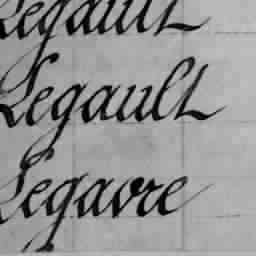 Legault
Legault
Legavre